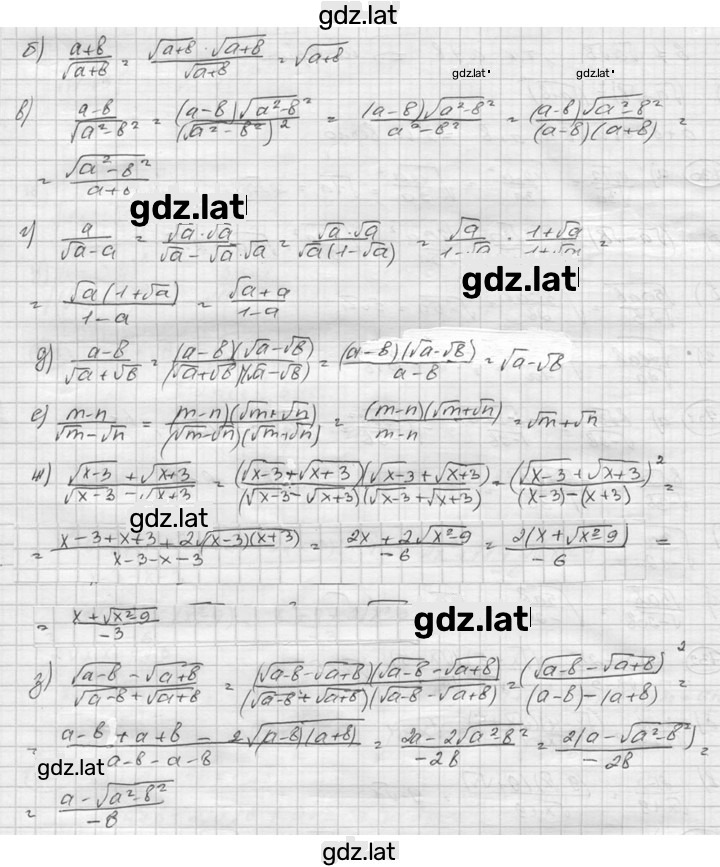 gdz.lat
б) (a+b)/√(a+b) = (√(a+b) · √(a+b))/√(a+b) = √(a+b)
gdz.lat gdz.lat
в) (a-b)/√(a²-b²) = ((a-b)√(a²-b²))/(√(a²-b²))² = ((a-b)√(a²-b²))/(a²-b²) = ((a-b)√(a²-b²))/((a-b)(a+b)) =
= √(a²-b²)/(a+b)
gdz.lat
г) a/(√a-a) = (√a·√a)/(√a-√a·√a) = (√a·√a)/(√a(1-√a)) = √a/(1-√a) · (1+√a)/(1+√a) =
gdz.lat
= (√a(1+√a))/(1-a) = (√a+a)/(1-a)
д) (a-b)/(√a+√b) = ((a-b)(√a-√b))/((√a+√b)(√a-√b)) = ((a-b)(√a-√b))/(a-b) = √a-√b
е) (m-n)/(√m-√n) = (m-n)(√m+√n)/((√m-√n)(√m+√n)) = ((m-n)(√m+√n))/(m-n) = √m+√n
ж) (√(x-3)+√(x+3))/(√(x-3)-√(x+3)) = ((√(x-3)+√(x+3))(√(x-3)+√(x+3)))/((√(x-3)-√(x+3))(√(x-3)+√(x+3))) = (√(x-3)+√(x+3))²/((x-3)-(x+3)) =
gdz.lat
= (x-3+x+3+2√((x-3)(x+3)))/(x-3-x-3) = (2x+2√(x²-9))/(-6) = (2(x+√(x²-9)))/(-6) =
= (x+√(x²-9))/(-3)
gdz.lat
з) (√(a-b)-√(a+b))/(√(a-b)+√(a+b)) = ((√(a-b)-√(a+b))(√(a-b)-√(a+b)))/((√(a-b)+√(a+b))(√(a-b)-√(a+b))) = (√(a-b)-√(a+b))²/((a-b)-(a+b)) =
= (a-b+a+b-2√((a-b)(a+b)))/(a-b-a-b) = (2a-2√(a²-b²))/(-2b) = (2(a-√(a²-b²)))/(-2b) =
gdz.lat
= (a-√(a²-b²))/(-b)
gdz.lat